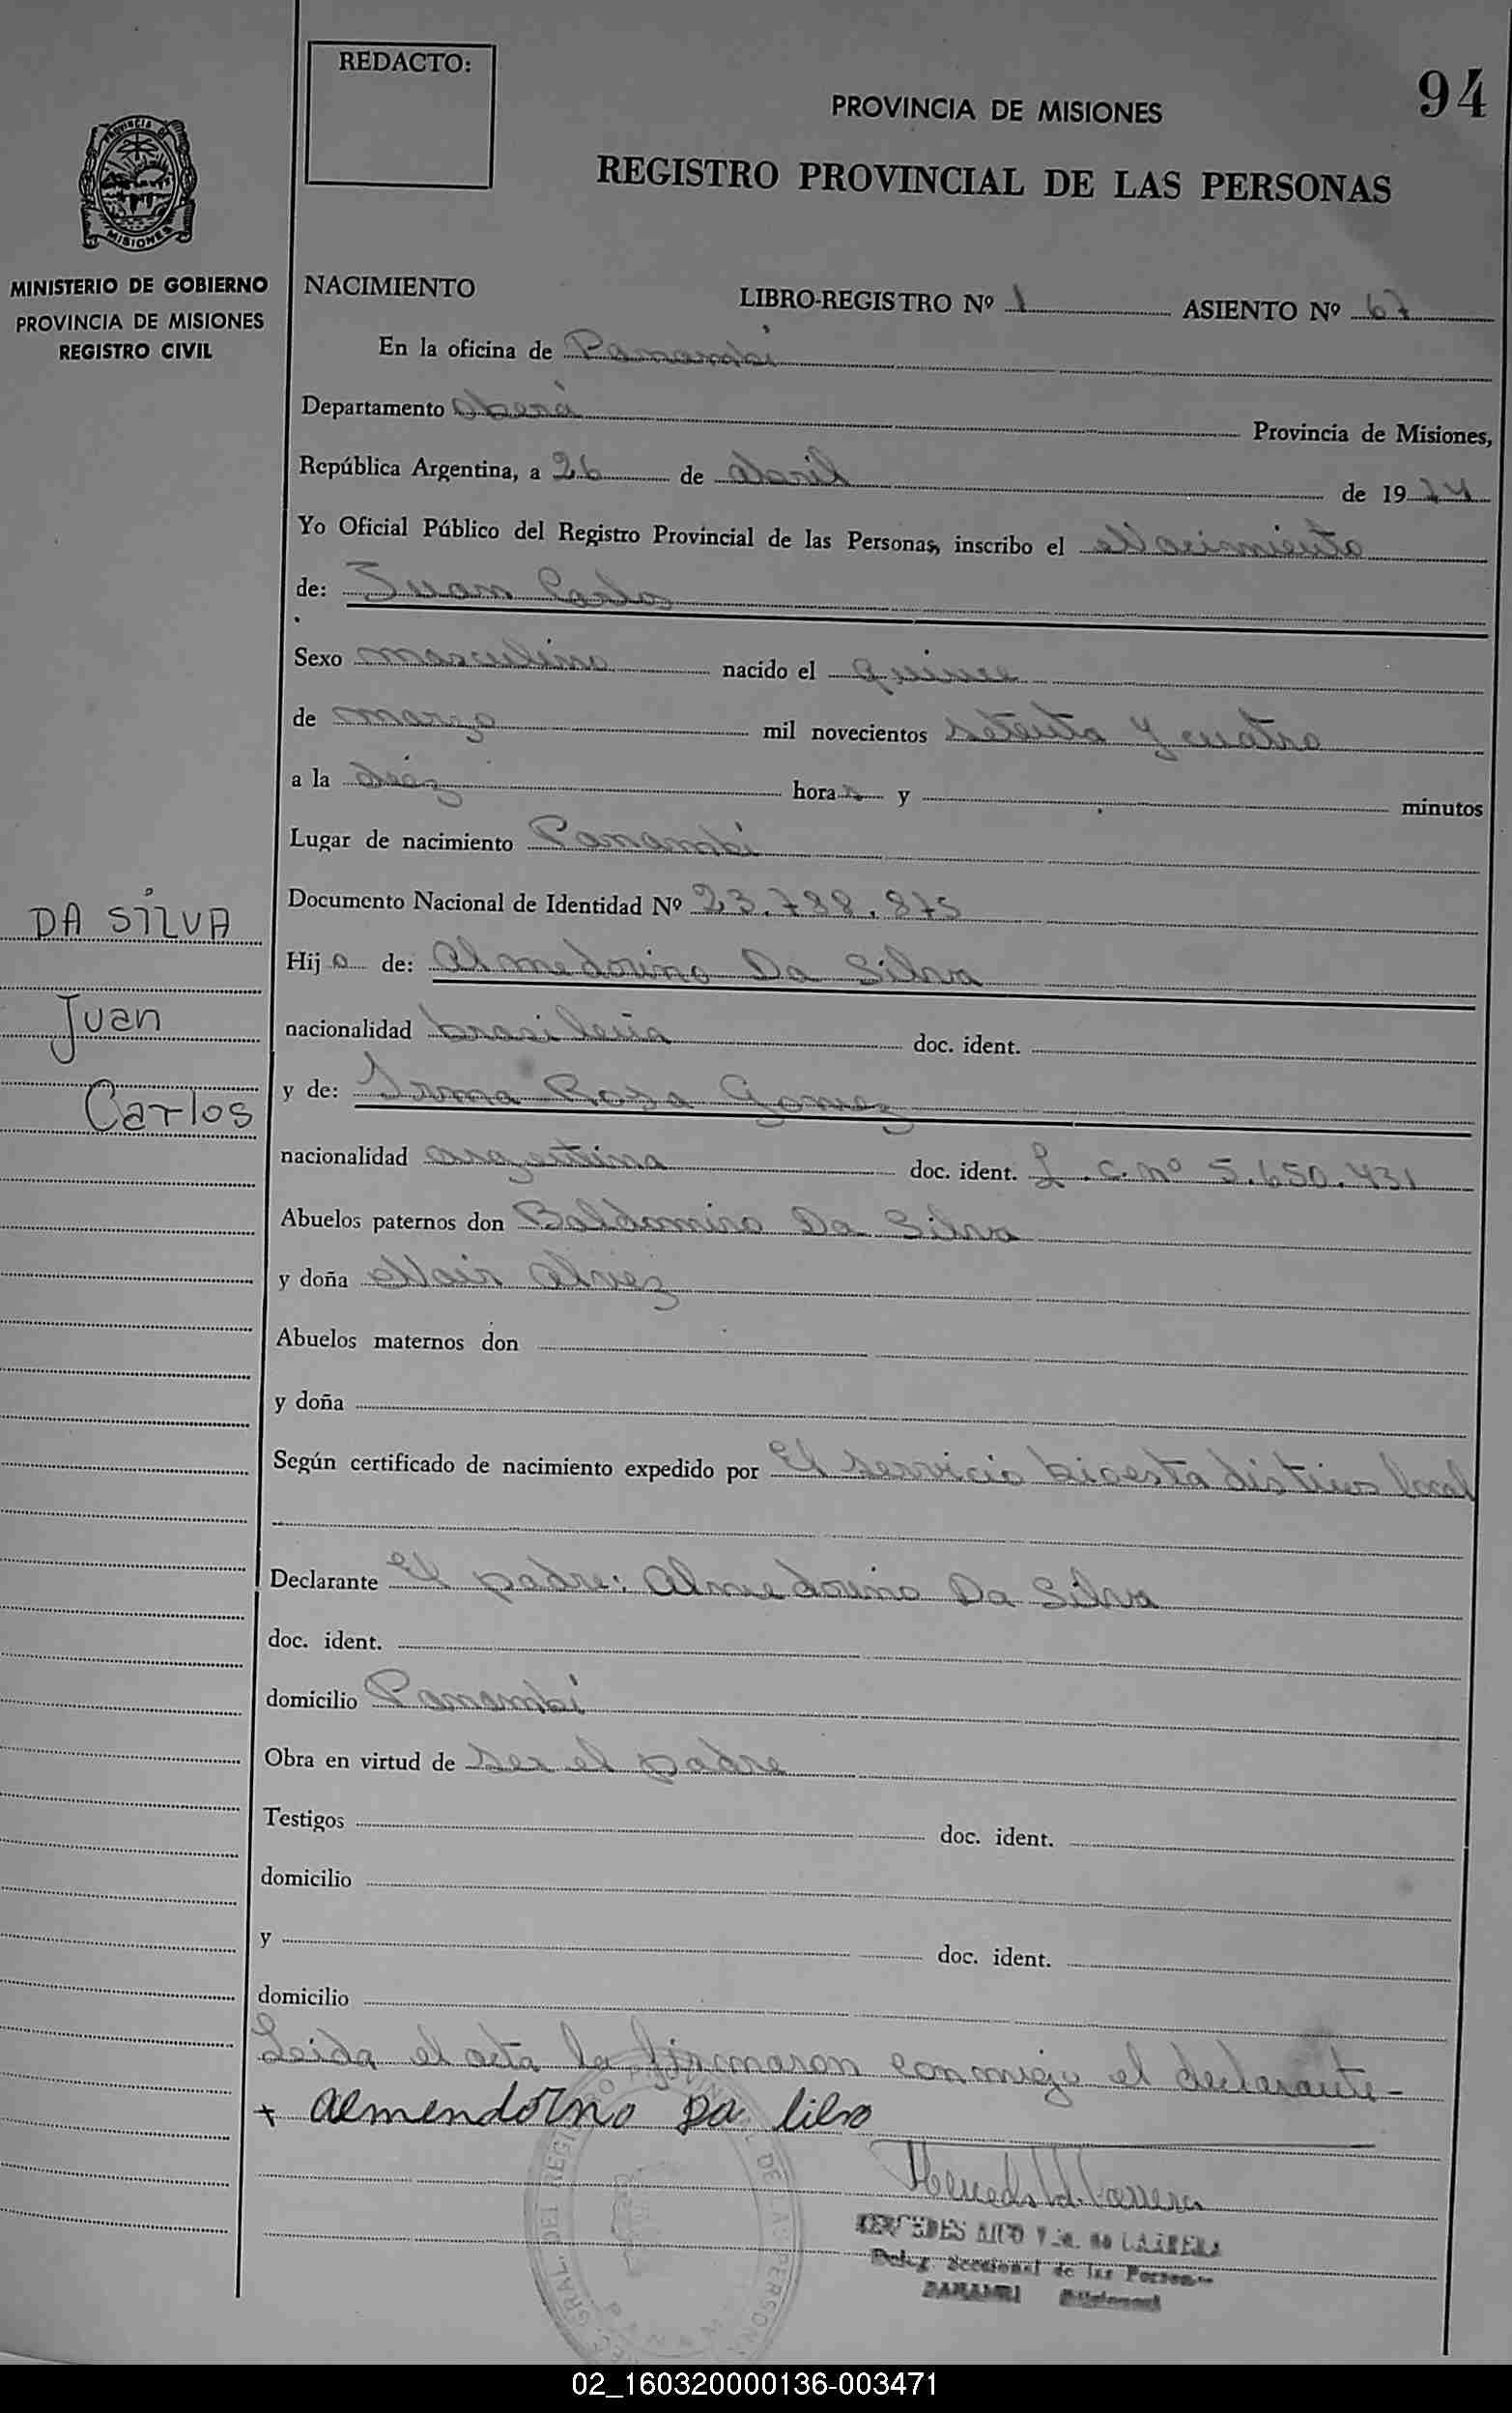 REDACTO:
94
PROVINCIA DE MISIONES
REGISTRO PROVINCIAL DE LAS PERSONAS
PROVINCIA DE
MISIONES
MINISTERIO DE GOBIERNO
PROVINCIA DE MISIONES
REGISTRO CIVIL
NACIMIENTO LIBRO-REGISTRO Nº 1 ASIENTO Nº 67
En la oficina de Panambí
Departamento Oberá Provincia de Misiones,
República Argentina, a 26 de Abril de 1974
Yo Oficial Público del Registro Provincial de las Personas, inscribo el Nacimiento
de: Juan Carlos
Sexo masculino nacido el quince
de marzo mil novecientos setenta y cuatro
a la diéz horas y minutos
Lugar de nacimiento Panambí
Documento Nacional de Identidad Nº 23.788.875
DA SILVA
Juan
Carlos
Hijo de: Almedorino Da Silva
nacionalidad brasileña doc. ident.
y de: Irma Rosa Gomez
nacionalidad argentina doc. ident. L.C. nº 5.650.431
Abuelos paternos don Baldomiro Da Silva
y doña Nair Alvez
Abuelos maternos don
y doña
Según certificado de nacimiento expedido por El servicio bioestadistico local
Declarante El padre: Almedorino Da Silva
doc. ident.
domicilio Panambí
Obra en virtud de ser el padre
Testigos doc. ident.
domicilio
y doc. ident.
domicilio
Leida el acta la firmaron conmigo el declarante-
+ almendorno Da Silva
MERCEDES Vda. de LARRERA
Deleg. Seccional de las Personas
PANAMBI Misiones
02_160320000136-003471